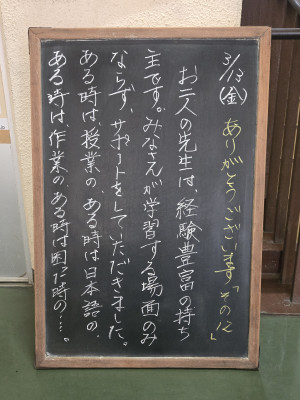 3/13(金)
ありがとうございます「その12」
お二人の先生は、経験豊富の持ち
主です。みなさんが学習する場面のみ
ならず、サポートをしていただきました。
ある時は、授業の、ある時は日本語の、
ある時は、作業の、ある時は困った時の…。